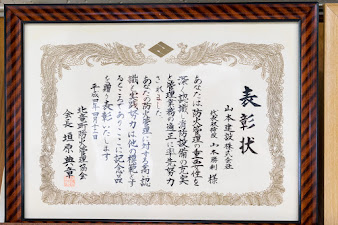 表彰状
山本建設株式会社
代表取締役 山本勝利 様
あなたは防火管理の重要性を
深く認識し消防設備の充実
と管理業務の適正に率先努力
されました
あなたの防火管理に対する高い認
識と実践努力は他の模範とす
るところでありここに記念品
を贈り表彰いたします
平成四年
防火管理協会
会長 垣原典章